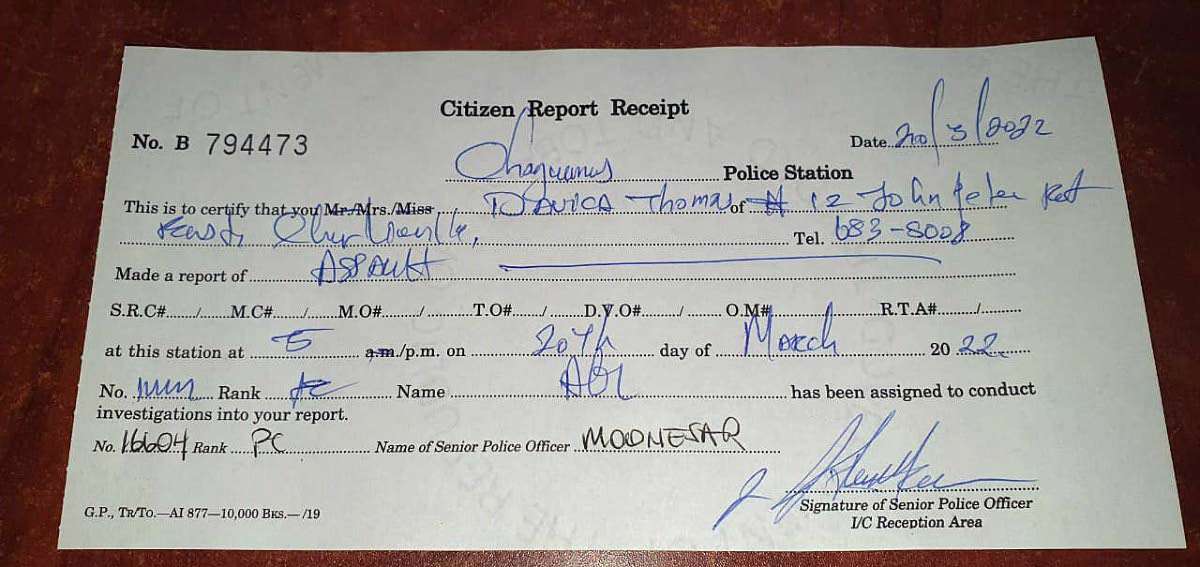 Citizen Report Receipt
No. B 794473
Date 20/3/2022
Chaguanas Police Station
This is to certify that you Mr./Mrs./Miss Thomas of # 12 John Peter Rd
Tel. 683-8008
Made a report of Assault
S.R.C#....../......M.C#....../......M.O#......../........T.O#....../......D.V.O#......./........O.M#....................R.T.A#......./..........
at this station at 5 a.m./p.m. on 20th day of March 2022
No. Rank Name has been assigned to conduct
investigations into your report.
No. 16604 Rank PC Name of Senior Police Officer MOONESAR
Signature of Senior Police Officer
I/C Reception Area
G.P., TR/TO.—AI 877—10,000 BKS.— /19